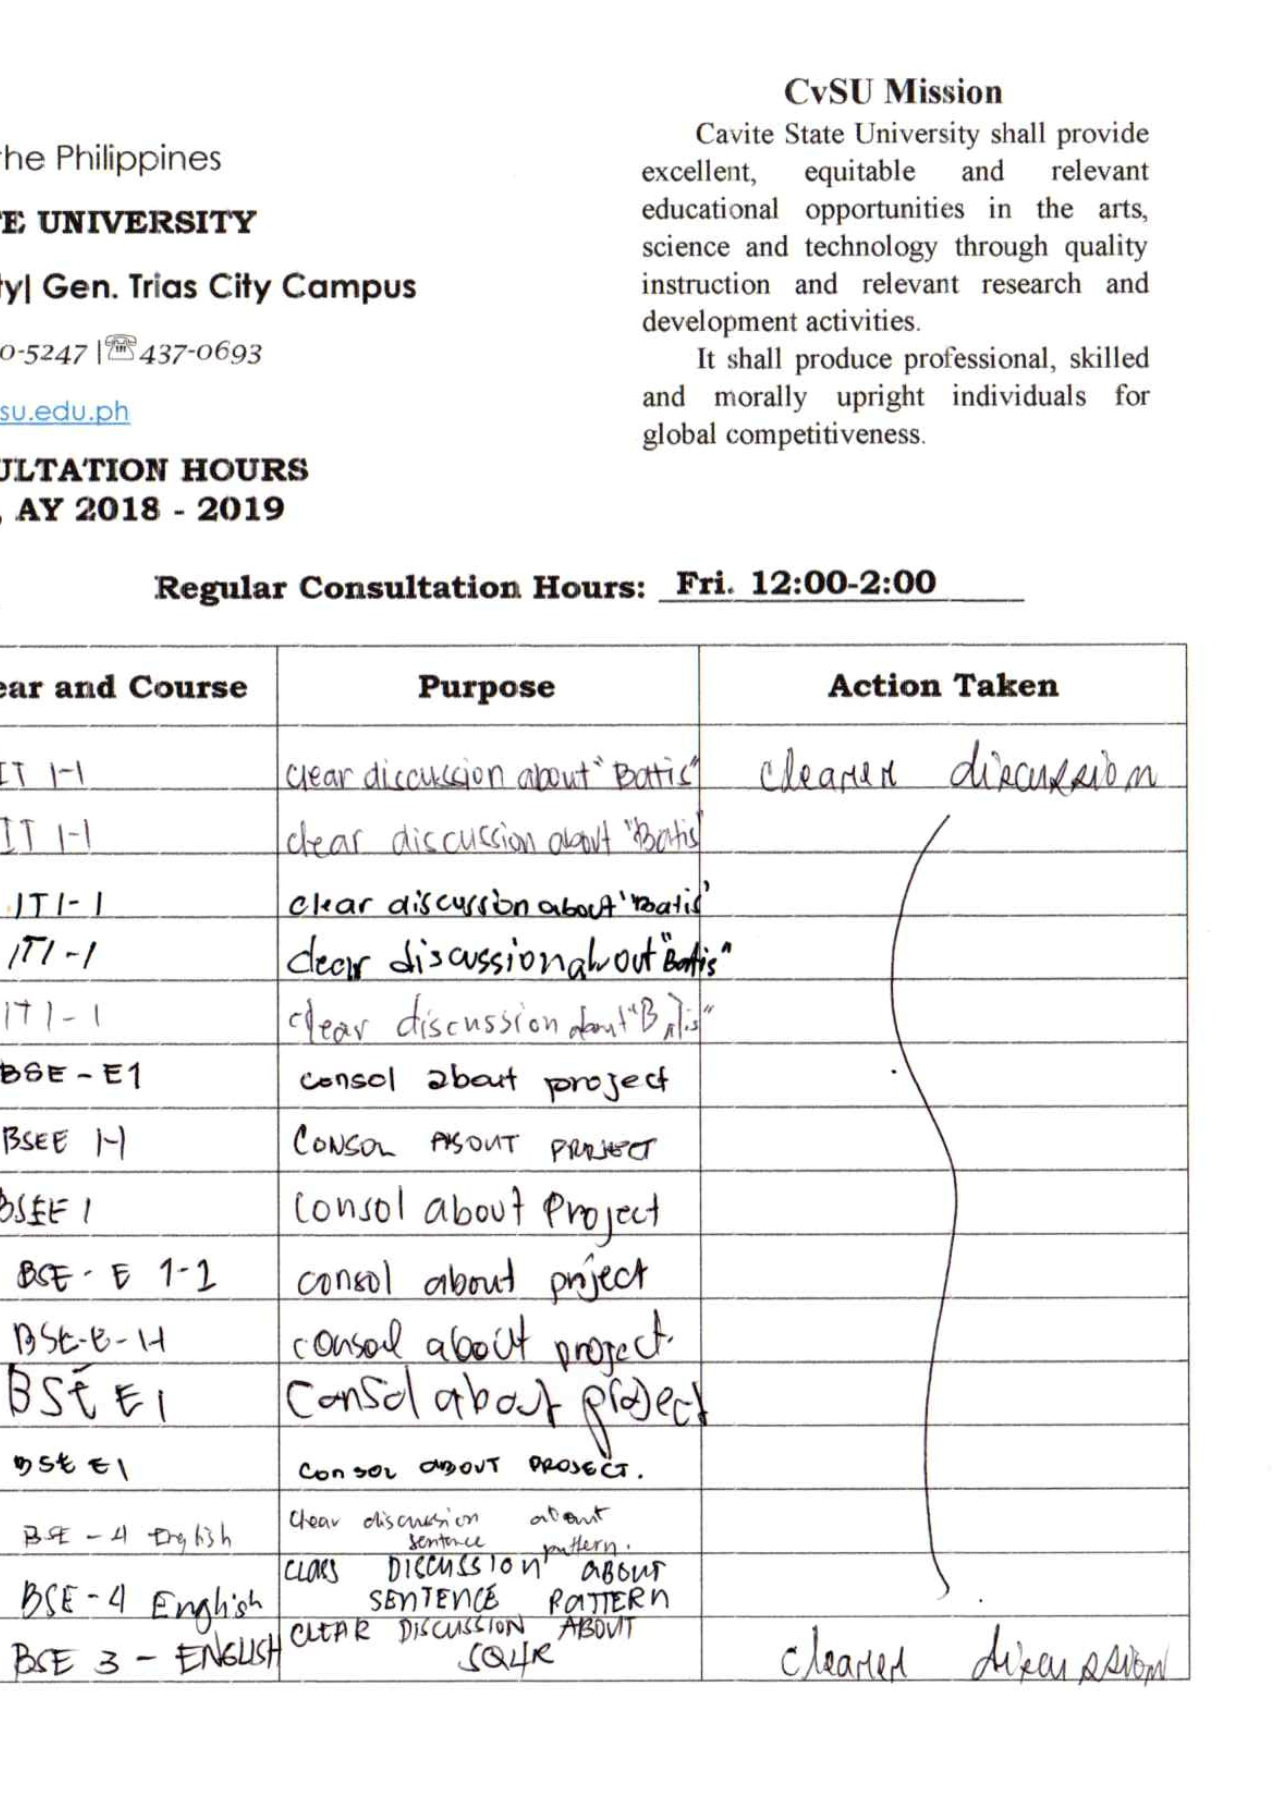 CvSU Mission
Cavite State University shall provide
excellent, equitable and relevant
educational opportunities in the arts,
science and technology through quality
instruction and relevant research and
development activities.
It shall produce professional, skilled
and morally upright individuals for
global competitiveness.
he Philippines
E UNIVERSITY
ty| Gen. Trias City Campus
0-5247 |☏437-0693
su.edu.ph
ULTATION HOURS
, AY 2018 - 2019
Regular Consultation Hours: Fri. 12:00-2:00
ear and Course Purpose Action Taken
IT 1-1 clear discussion about "Batis" clearer discussion
IT 1-1 clear discussion about "Batis
IT1-1 clear discussion about 'Batis'
IT1-1 clear discussion about "Batis"
IT1-1 clear discussion about "Batis"
BSE-E1 consol about project
BSEE 1-1 CONSOL ABOUT PROJECT
BSEE 1 Consol about Project
BSE-E 1-1 consol about project
BSE-E-1-1 consol about project.
BSE E1 Consol about project
BSE E1 Consol ABOUT PROJECT.
BSE - 4 English Clear discussion about
sentence pattern.
BSE-4 English DISCUSSION ABOUT
SENTENCE PATTERN
BSE 3 - ENGLISH CLEAR DISCUSSION ABOUT
SQ4R clearer discussion